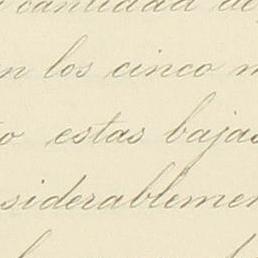 cantidad de
n los cinco m
o estas bajas
siderablemen